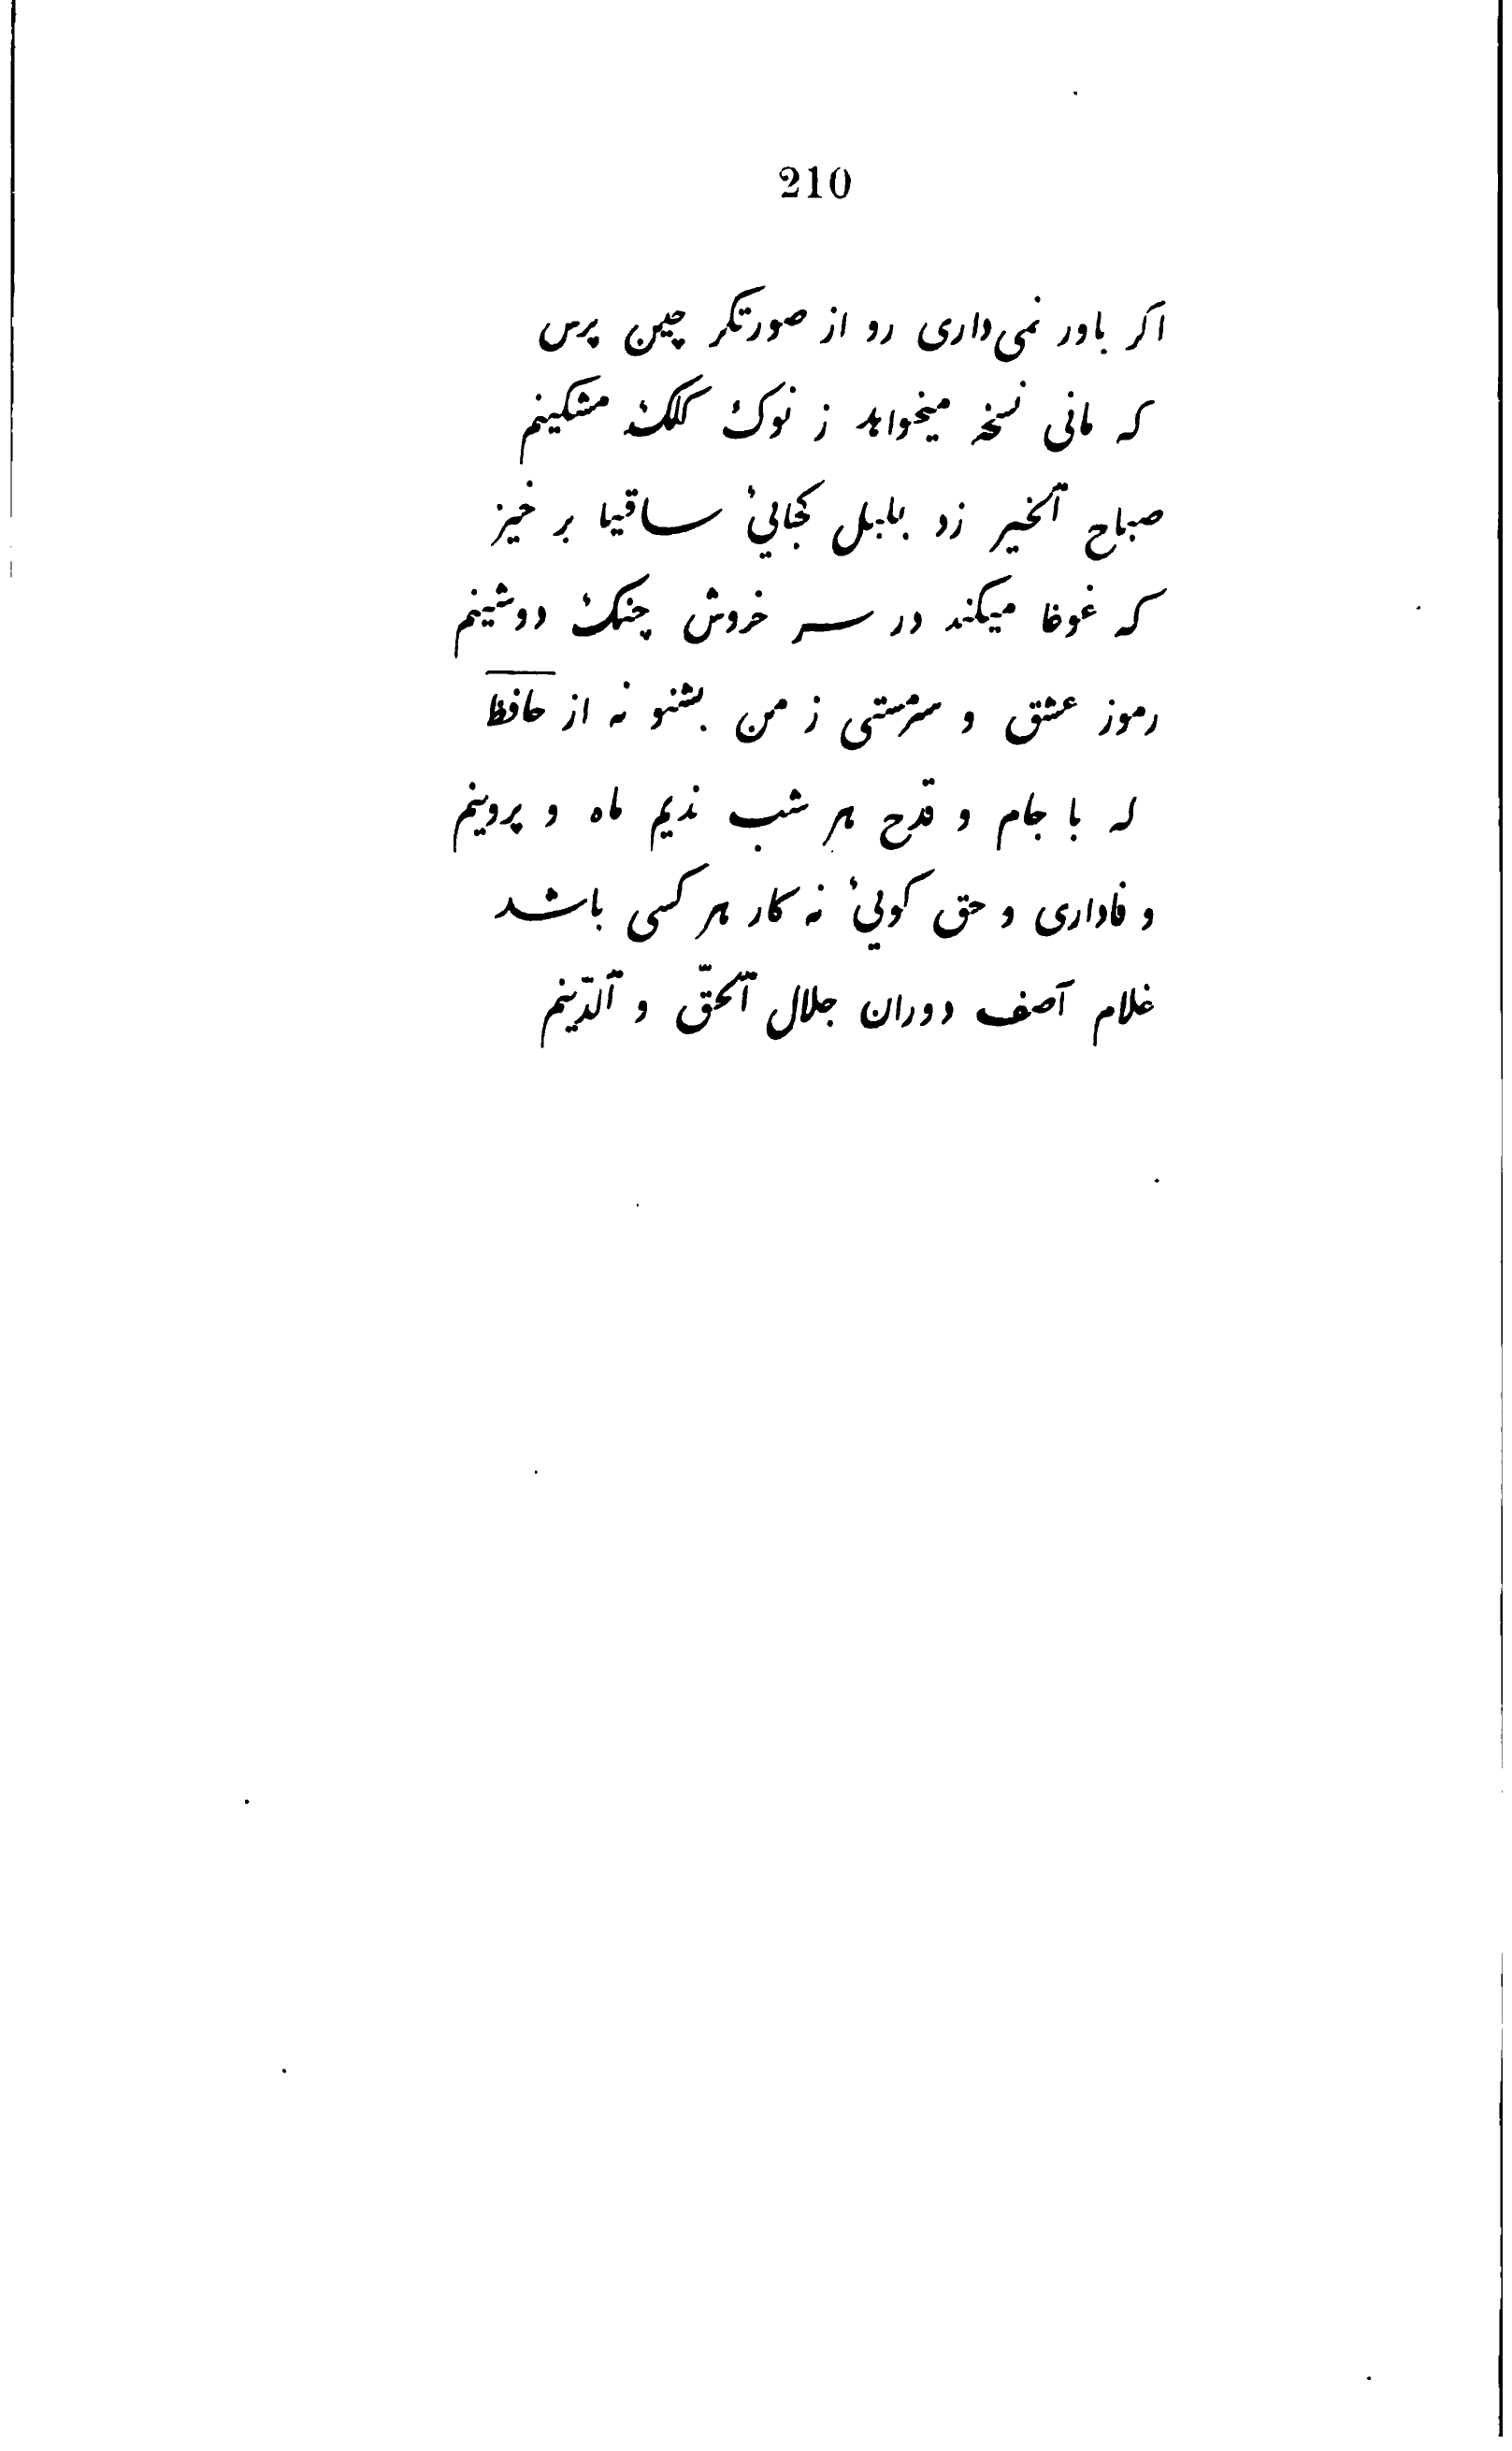 210
اکر باور نمی‌داری رو از صورتکر چین پرس
که مانی نسخه میخواهد ز نوک کلک مشکینم
صباح ٱلخیر زد بلبل کجائیٔ ساقیا بر خیز
که غوغا میکند در سر خروش چنک دوشینم
رموز عشق و سرمستی ز من بشنو نه از حافظ
که با جام و قدح هر شب ندیم ماه و پروینم
وفاداری و حق کوییٔ نه کار هر کسی باشد
غلام آصف دوران جلال ٱلحقّ و ٱلدّینم